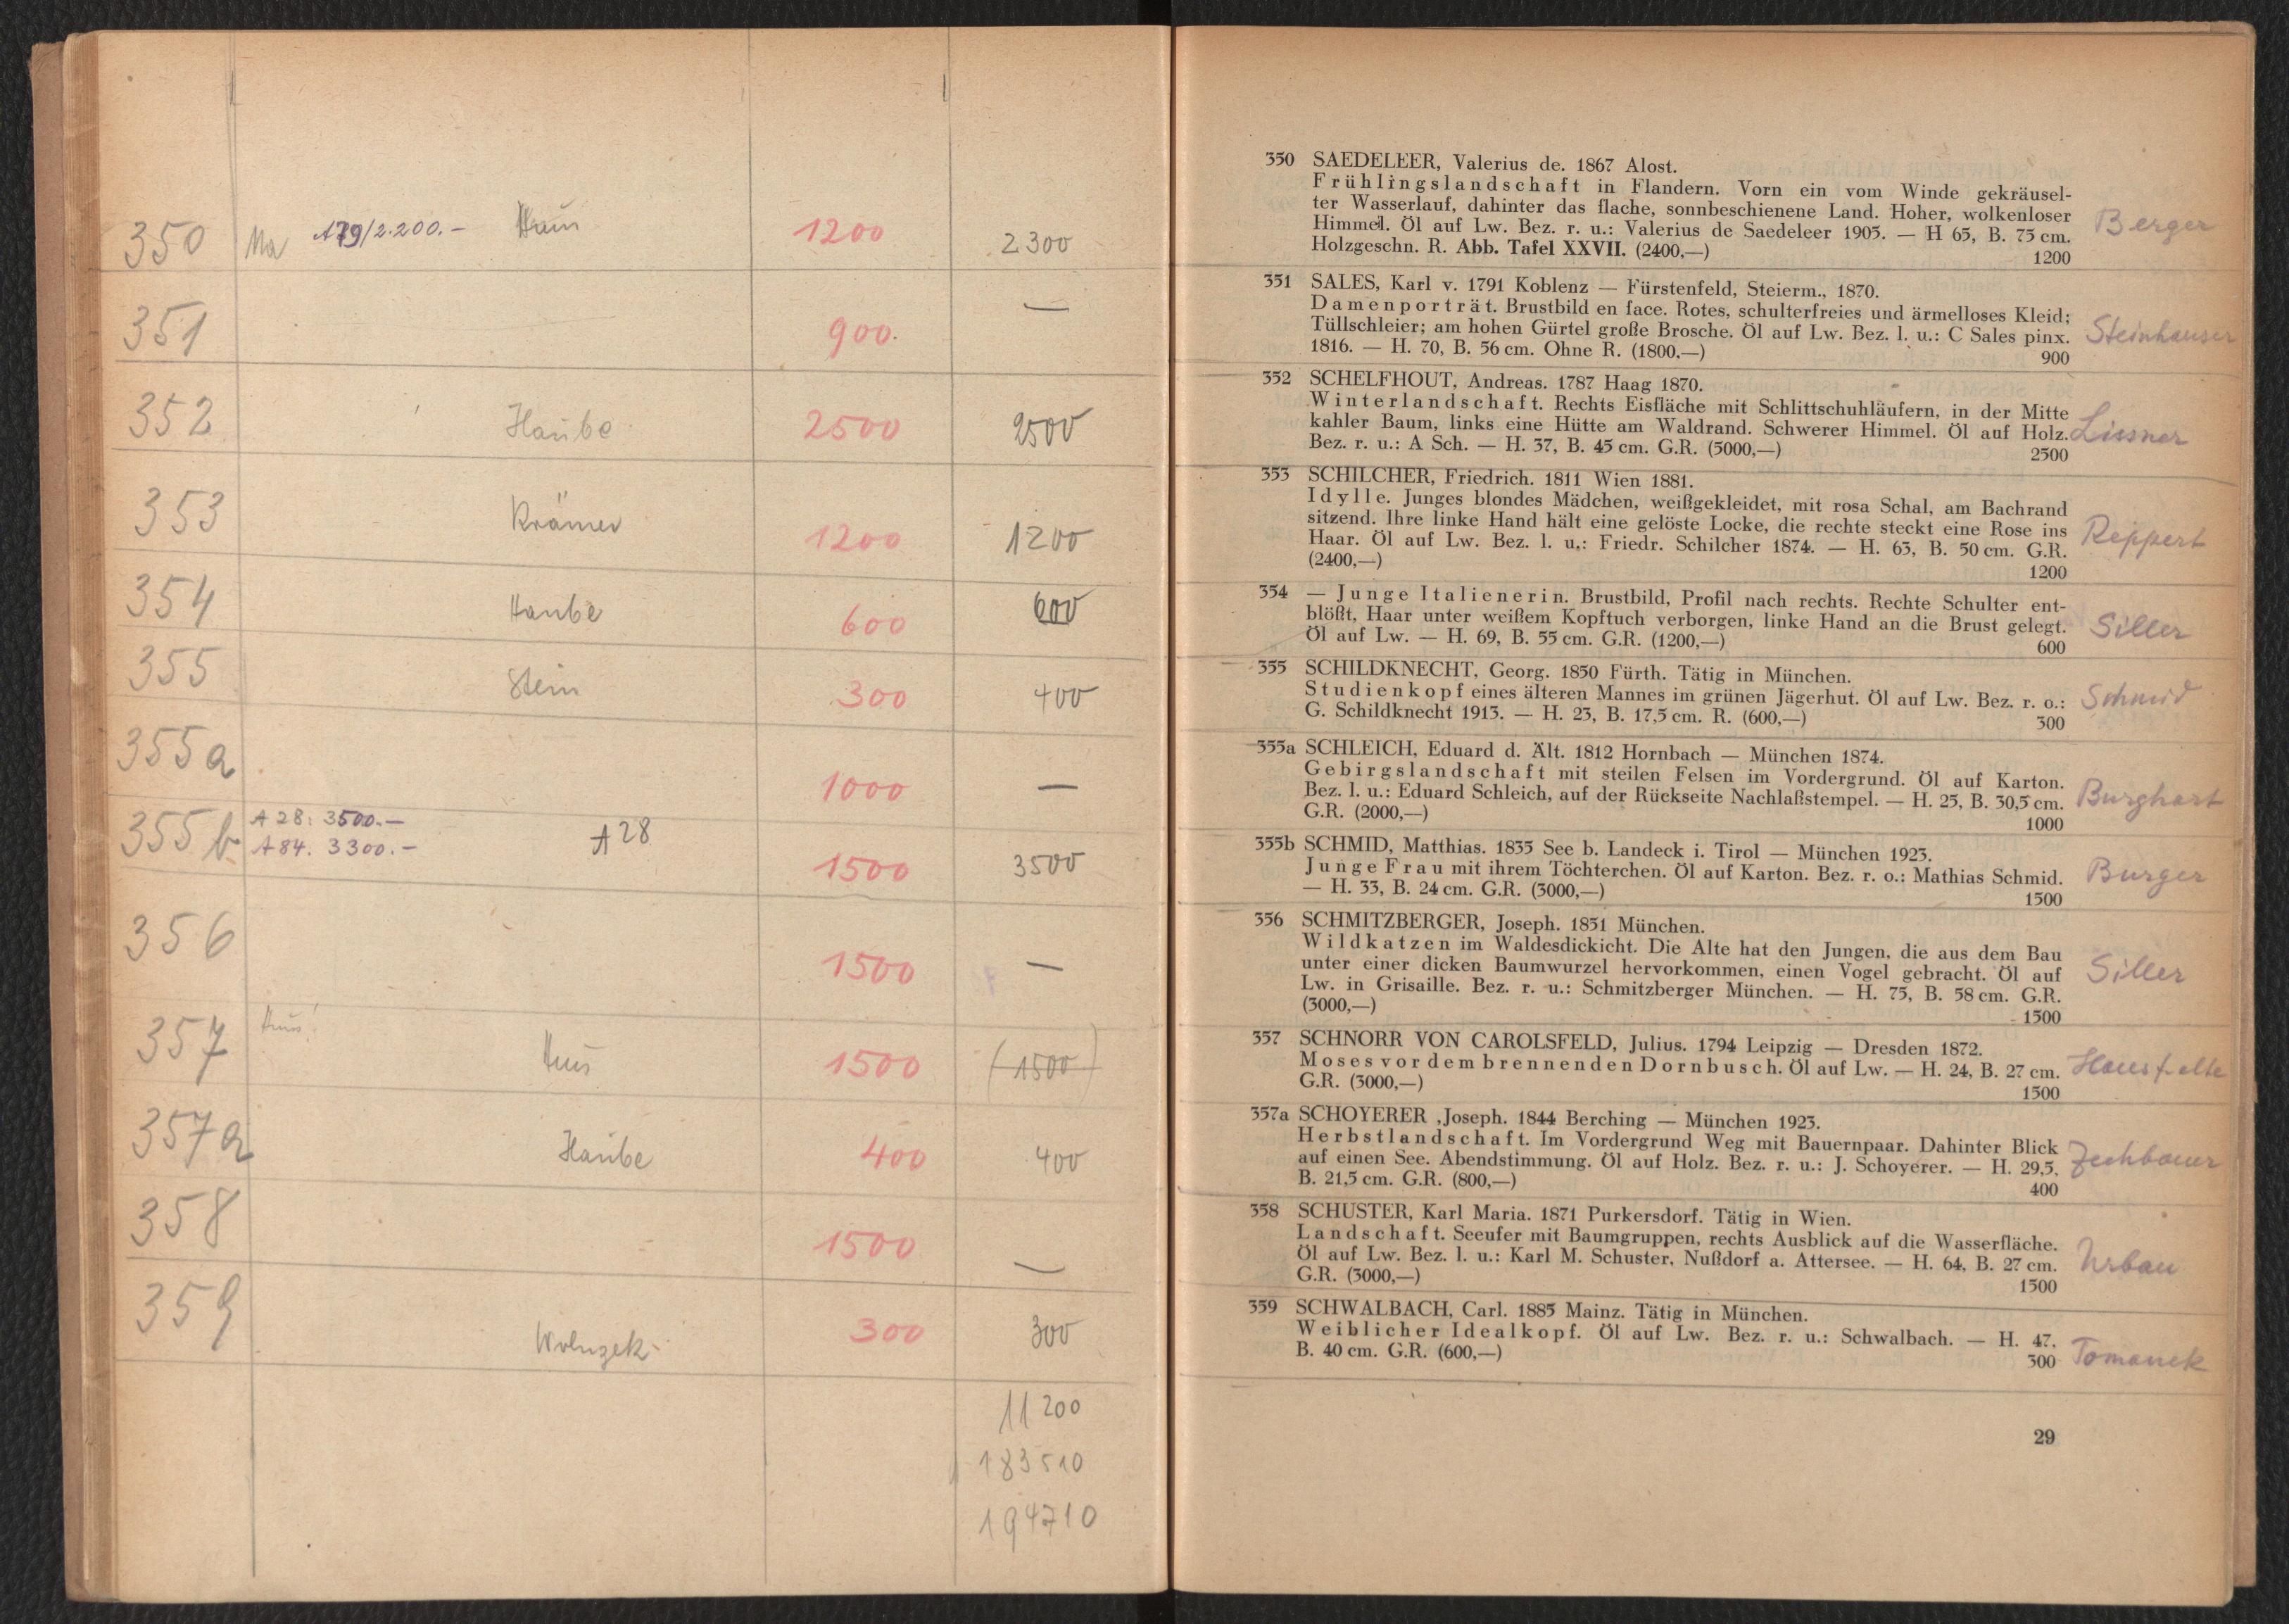 350 Na A79/2.200.- 1200 2300
351 900. —
352 Haube 2500 2500
353 Krämer 1200 1200
354 Haube 600 600
355 Stein 300 400
355a 1000 —
355b A 28: 3500.—
A 84. 3300.— A 28 1500 3500
356 1500 —
357 Hus 1500 (1500)
357a Haube 400 400
358 1500 —
359 300 300
11 200
183510
194710
350 SAEDELEER, Valerius de. 1867 Alost.
Frühlingslandschaft in Flandern. Vorn ein vom Winde gekräusel-
ter Wasserlauf, dahinter das flache, sonnbeschienene Land. Hoher, wolkenloser
Himmel. Öl auf Lw. Bez. r. u.: Valerius de Saedeleer 1903. — H 65, B. 75 cm.
Holzgeschn. R. Abb. Tafel XXVII. (2400,—) 1200
Berger
351 SALES, Karl v. 1791 Koblenz — Fürstenfeld, Steierm., 1870.
Damenporträt. Brustbild en face. Rotes, schulterfreies und ärmelloses Kleid;
Tüllschleier; am hohen Gürtel große Brosche. Öl auf Lw. Bez. l. u.: C Sales pinx.
1816. — H. 70, B. 56 cm. Ohne R. (1800,—) 900
Steinhauser
352 SCHELFHOUT, Andreas. 1787 Haag 1870.
Winterlandschaft. Rechts Eisfläche mit Schlittschuhläufern, in der Mitte
kahler Baum, links eine Hütte am Waldrand. Schwerer Himmel. Öl auf Holz.
Bez. r. u.: A Sch. — H. 37, B. 45 cm. G.R. (5000,—) 2500
Lissner
353 SCHILCHER, Friedrich. 1811 Wien 1881.
Idylle. Junges blondes Mädchen, weißgekleidet, mit rosa Schal, am Bachrand
sitzend. Ihre linke Hand hält eine gelöste Locke, die rechte steckt eine Rose ins
Haar. Öl auf Lw. Bez. l. u.: Friedr. Schilcher 1874. — H. 63, B. 50 cm. G.R.
(2400,—) 1200
Reppert
354 — Junge Italienerin. Brustbild, Profil nach rechts. Rechte Schulter ent-
blößt, Haar unter weißem Kopftuch verborgen, linke Hand an die Brust gelegt.
Öl auf Lw. — H. 69, B. 55 cm. G.R. (1200,—) 600
Siller
355 SCHILDKNECHT, Georg. 1850 Fürth. Tätig in München.
Studienkopf eines älteren Mannes im grünen Jägerhut. Öl auf Lw. Bez. r. o.:
G. Schildknecht 1913. — H. 23, B. 17,5 cm. R. (600,—) 300
Schmid
355a SCHLEICH, Eduard d. Ält. 1812 Hornbach — München 1874.
Gebirgslandschaft mit steilen Felsen im Vordergrund. Öl auf Karton.
Bez. l. u.: Eduard Schleich, auf der Rückseite Nachlaßstempel. — H. 25, B. 30,5 cm.
G.R. (2000,—) 1000
Burghart
355b SCHMID, Matthias. 1835 See b. Landeck i. Tirol — München 1923.
Junge Frau mit ihrem Töchterchen. Öl auf Karton. Bez. r. o.: Mathias Schmid.
— H. 33, B. 24 cm. G.R. (3000,—) 1500
Burger
356 SCHMITZBERGER, Joseph. 1851 München.
Wildkatzen im Waldesdickicht. Die Alte hat den Jungen, die aus dem Bau
unter einer dicken Baumwurzel hervorkommen, einen Vogel gebracht. Öl auf
Lw. in Grisaille. Bez. r. u.: Schmitzberger München. — H. 75, B. 58 cm. G.R.
(3000,—) 1500
Siller
357 SCHNORR VON CAROLSFELD, Julius. 1794 Leipzig — Dresden 1872.
Moses vor dem brennenden Dornbusch. Öl auf Lw. — H. 24, B. 27 cm.
G.R. (3000,—) 1500
357a SCHOYERER ,Joseph. 1844 Berching — München 1923.
Herbstlandschaft. Im Vordergrund Weg mit Bauernpaar. Dahinter Blick
auf einen See. Abendstimmung. Öl auf Holz. Bez. r. u.: J. Schoyerer. — H. 29,5,
B. 21,5 cm. G.R. (800,—) 400
Zechbauer
358 SCHUSTER, Karl Maria. 1871 Purkersdorf. Tätig in Wien.
Landschaft. Seeufer mit Baumgruppen, rechts Ausblick auf die Wasserfläche.
Öl auf Lw. Bez. l. u.: Karl M. Schuster, Nußdorf a. Attersee. — H. 64, B. 27 cm.
G.R. (3000,—) 1500
Urban
359 SCHWALBACH, Carl. 1885 Mainz. Tätig in München.
Weiblicher Idealkopf. Öl auf Lw. Bez. r. u.: Schwalbach. — H. 47,
B. 40 cm. G.R. (600,—) 300
Tomanek
29